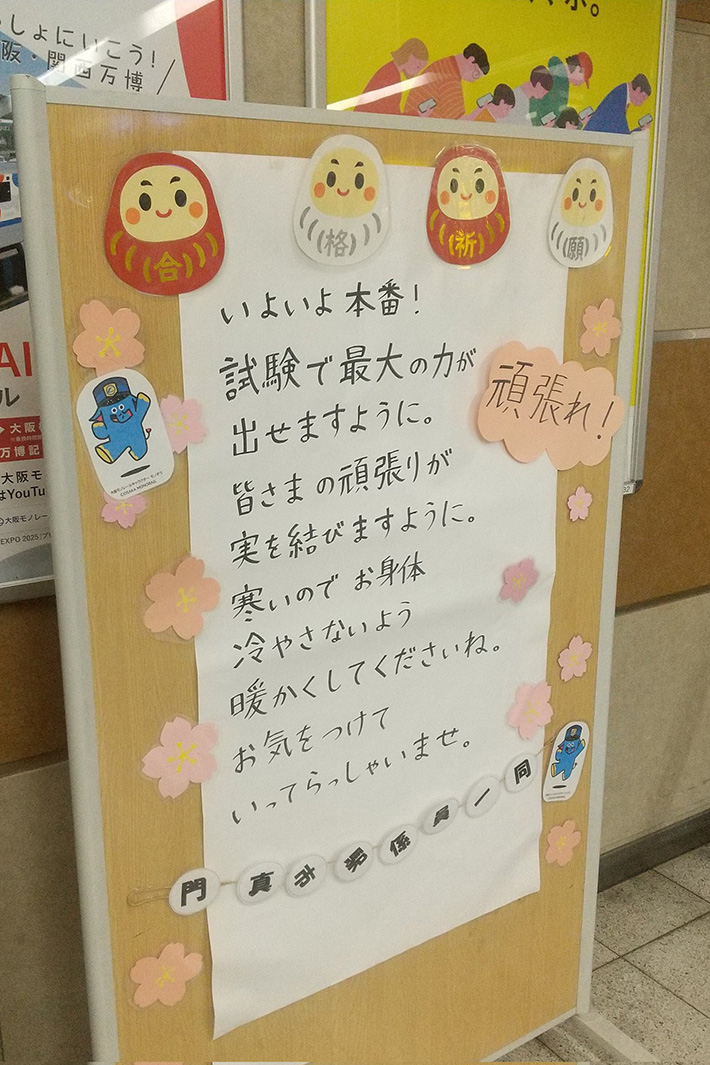 しょにいこう!
阪・関西万博
す。
合 格 祈 願
いよいよ本番!
試験で最大の力が
出せますように。
頑張れ!
皆さまの頑張りが
実を結びますように。
寒いので お身体
冷やさないよう
暖かくしてくださいね。
お気をつけて
いってらっしゃいませ。
門真市駅係員一同
©OSAKA MONORAIL
AI
ル
大阪
万博記
大阪モ
はYouTu
大阪モノレー
EXPO 2025